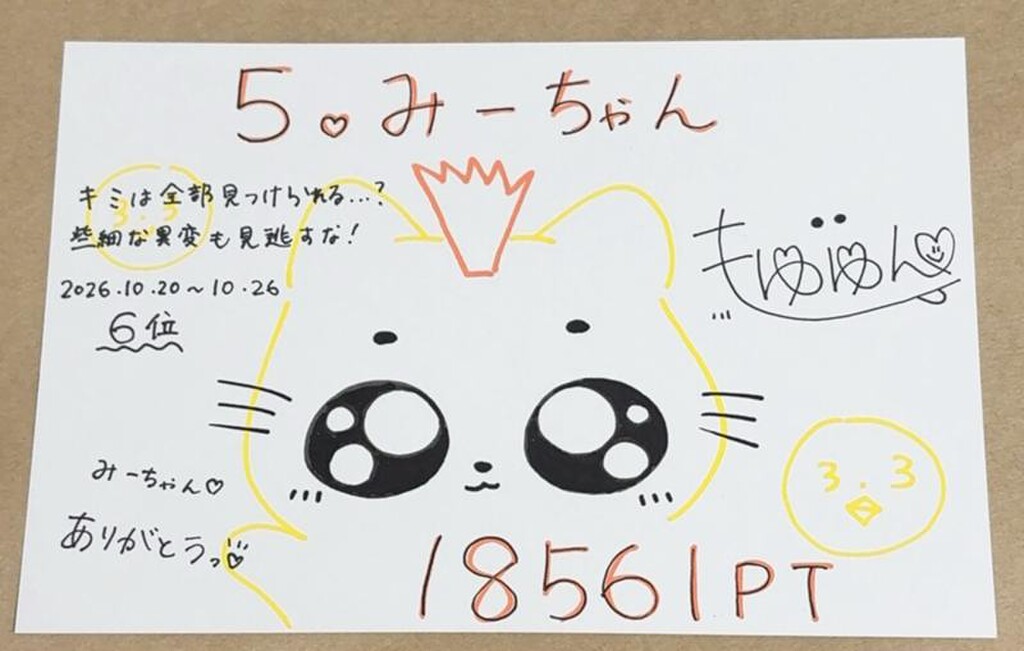 5.♡みーちゃん
キミは全部見つけられる...?
些細な異変も見逃すな!
2026.10.20~10.26
6位
もゆゆん♡
3.3
みーちゃん♡
ありがとうっ♡
3.3
18561PT